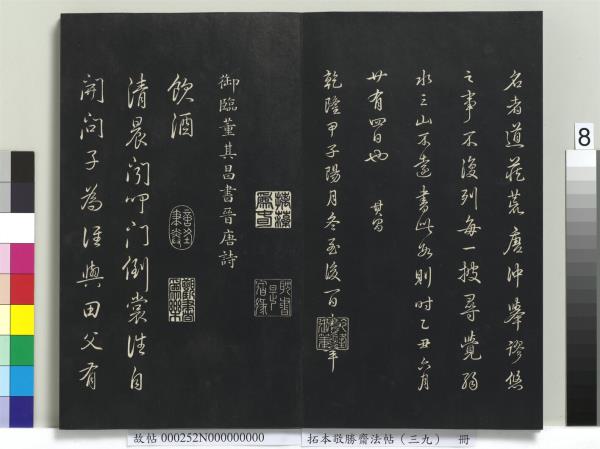 名者道藏荒唐沖舉謬悠
之事不復列每一披尋覺弱
水三山不遠書此為則時乙丑六月
廿有四日也 其昌
乾隆甲子陽月冬至後一日
御臨董其昌書晉唐詩
飲酒
清晨聞叩門倒裳往自
開問子為誰與田父有
8
故帖 000252N000000000
拓本敬勝齋法帖（三九） 冊